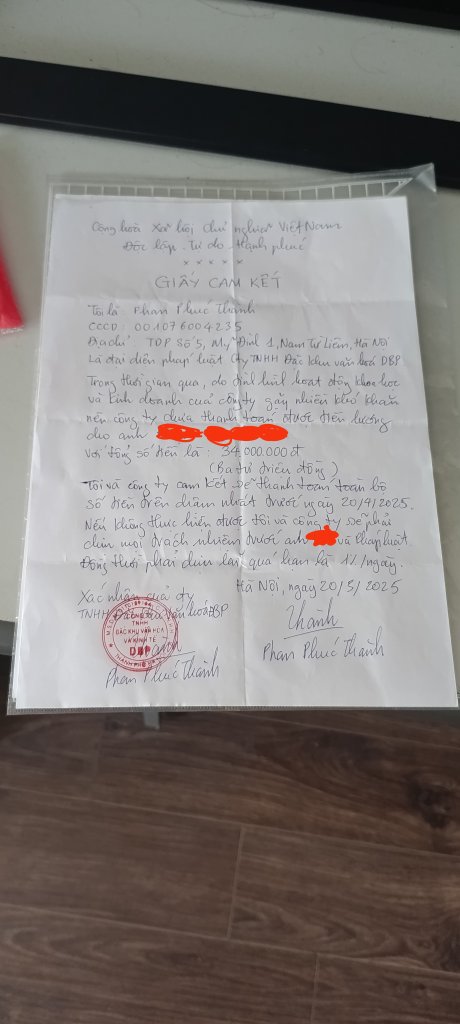 Cộng hòa Xã hội chủ nghĩa Việt Nam
Độc lập - Tự do - Hạnh phúc
x x x x x
GIẤY CAM KẾT
Tôi là: Phan Phúc Thành
CCCD: 001076004235
Địa chỉ: TDP Số 5, Mỹ Đình 1, Nam Từ Liêm, Hà Nội
Là đại diện pháp luật Cty TNHH Đặc khu văn hoá DBP
Trong thời gian qua, do tình hình hoạt động khoa học
và kinh doanh của công ty gặp nhiều khó khăn
nên công ty chưa thanh toán được tiền lương
cho anh
với tổng số tiền là: 34.000.000đ
(Ba tư triệu đồng)
Tôi và công ty cam kết sẽ thanh toán toàn bộ
số tiền trên chậm nhất trước ngày 20/4/2025.
Nếu không thực hiện được tôi và công ty sẽ phải
chịu mọi trách nhiệm trước anh và Pháp luật.
Đồng thời phải chịu lãi quá hạn là 1%/ngày.
Hà Nội, ngày 20/3/2025
Xác nhận của cty
TNHH Đặc khu Văn hoá DBP
CÔNG TY
TNHH
ĐẶC KHU VĂN HÓA
VÀ KINH TẾ
DBP
Thành
Phan Phúc Thành
Phan Phúc Thành